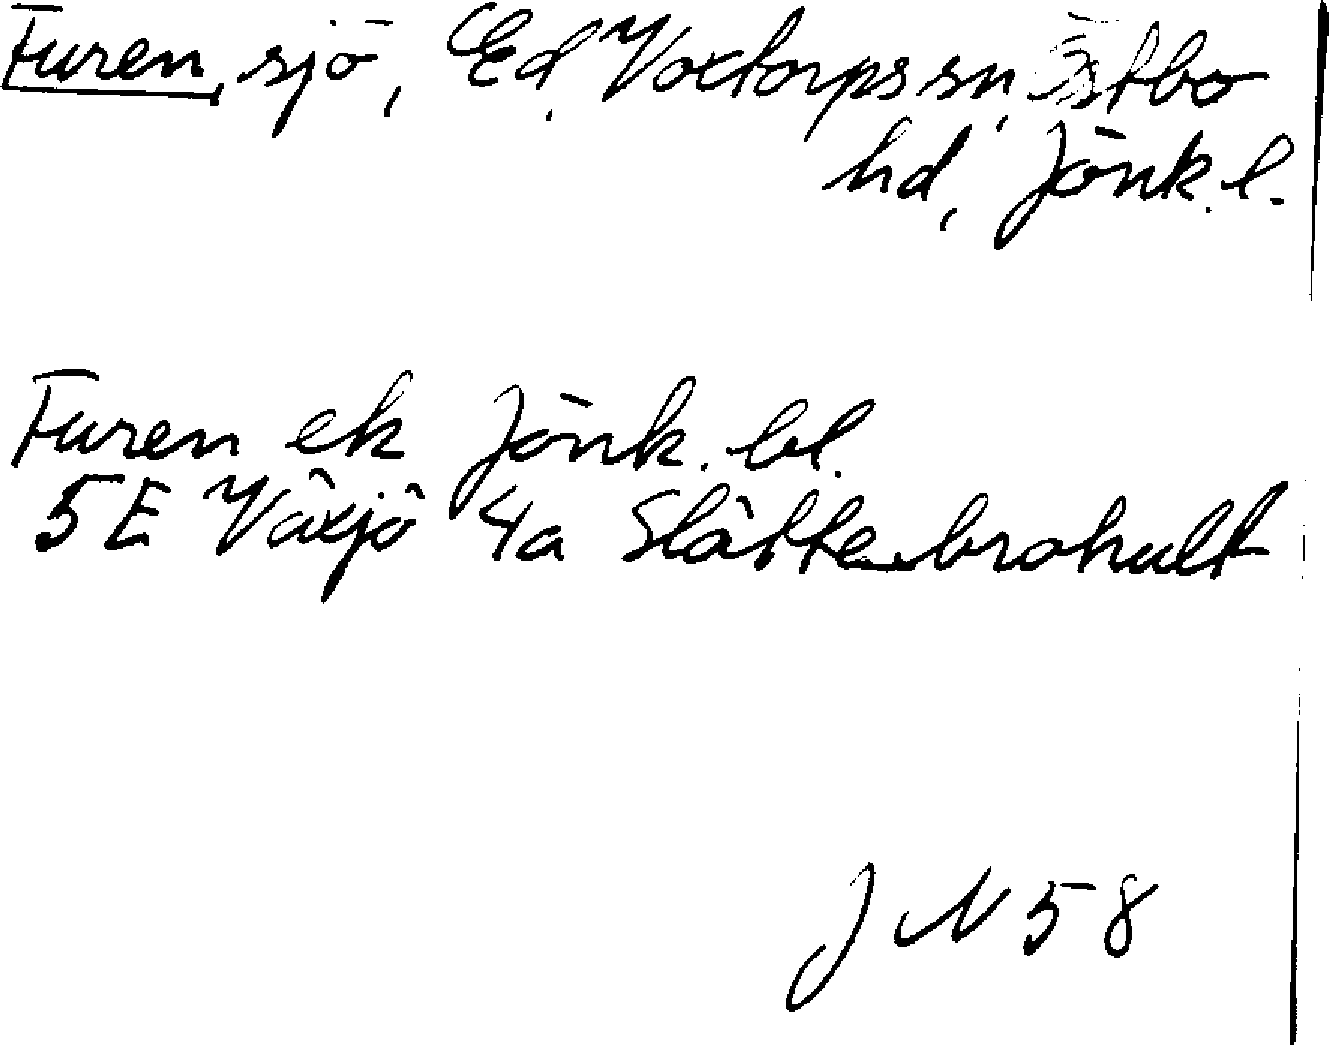 Furen, sjö, Ed, Voxtorps sn, Östbo
hd, Jönk. l.
Furen ek Jönk. bl.
5E Växjö 4a Slättebrohult
J N 58